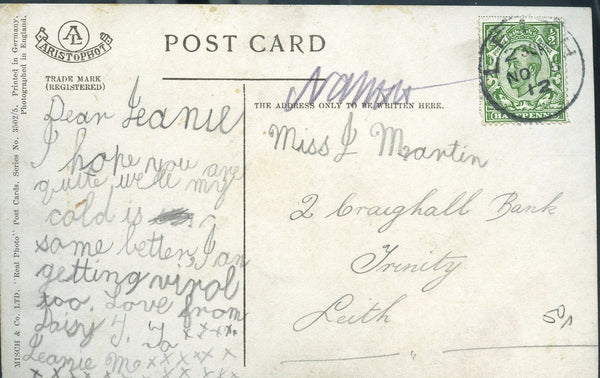 AL
ARISTOPHOT
TRADE MARK
(REGISTERED)
POST CARD
THE ADDRESS ONLY TO BE WRITTEN HERE.
MISCH & Co. LTD. "Real Photo" Post Cards. Series No. 3502/5. Printed in Germany.
Photographed in England.
Dear Jeanie
I hope you are
quite well my
cold is
some better, I am
getting virol
too. Love from
Daisy
to
Jeanie M xxxxx
Miss J Martin
2 Craighall Bank
Trinity
Leith
LEITH
NO
12
1/2
HALFPENNY
50